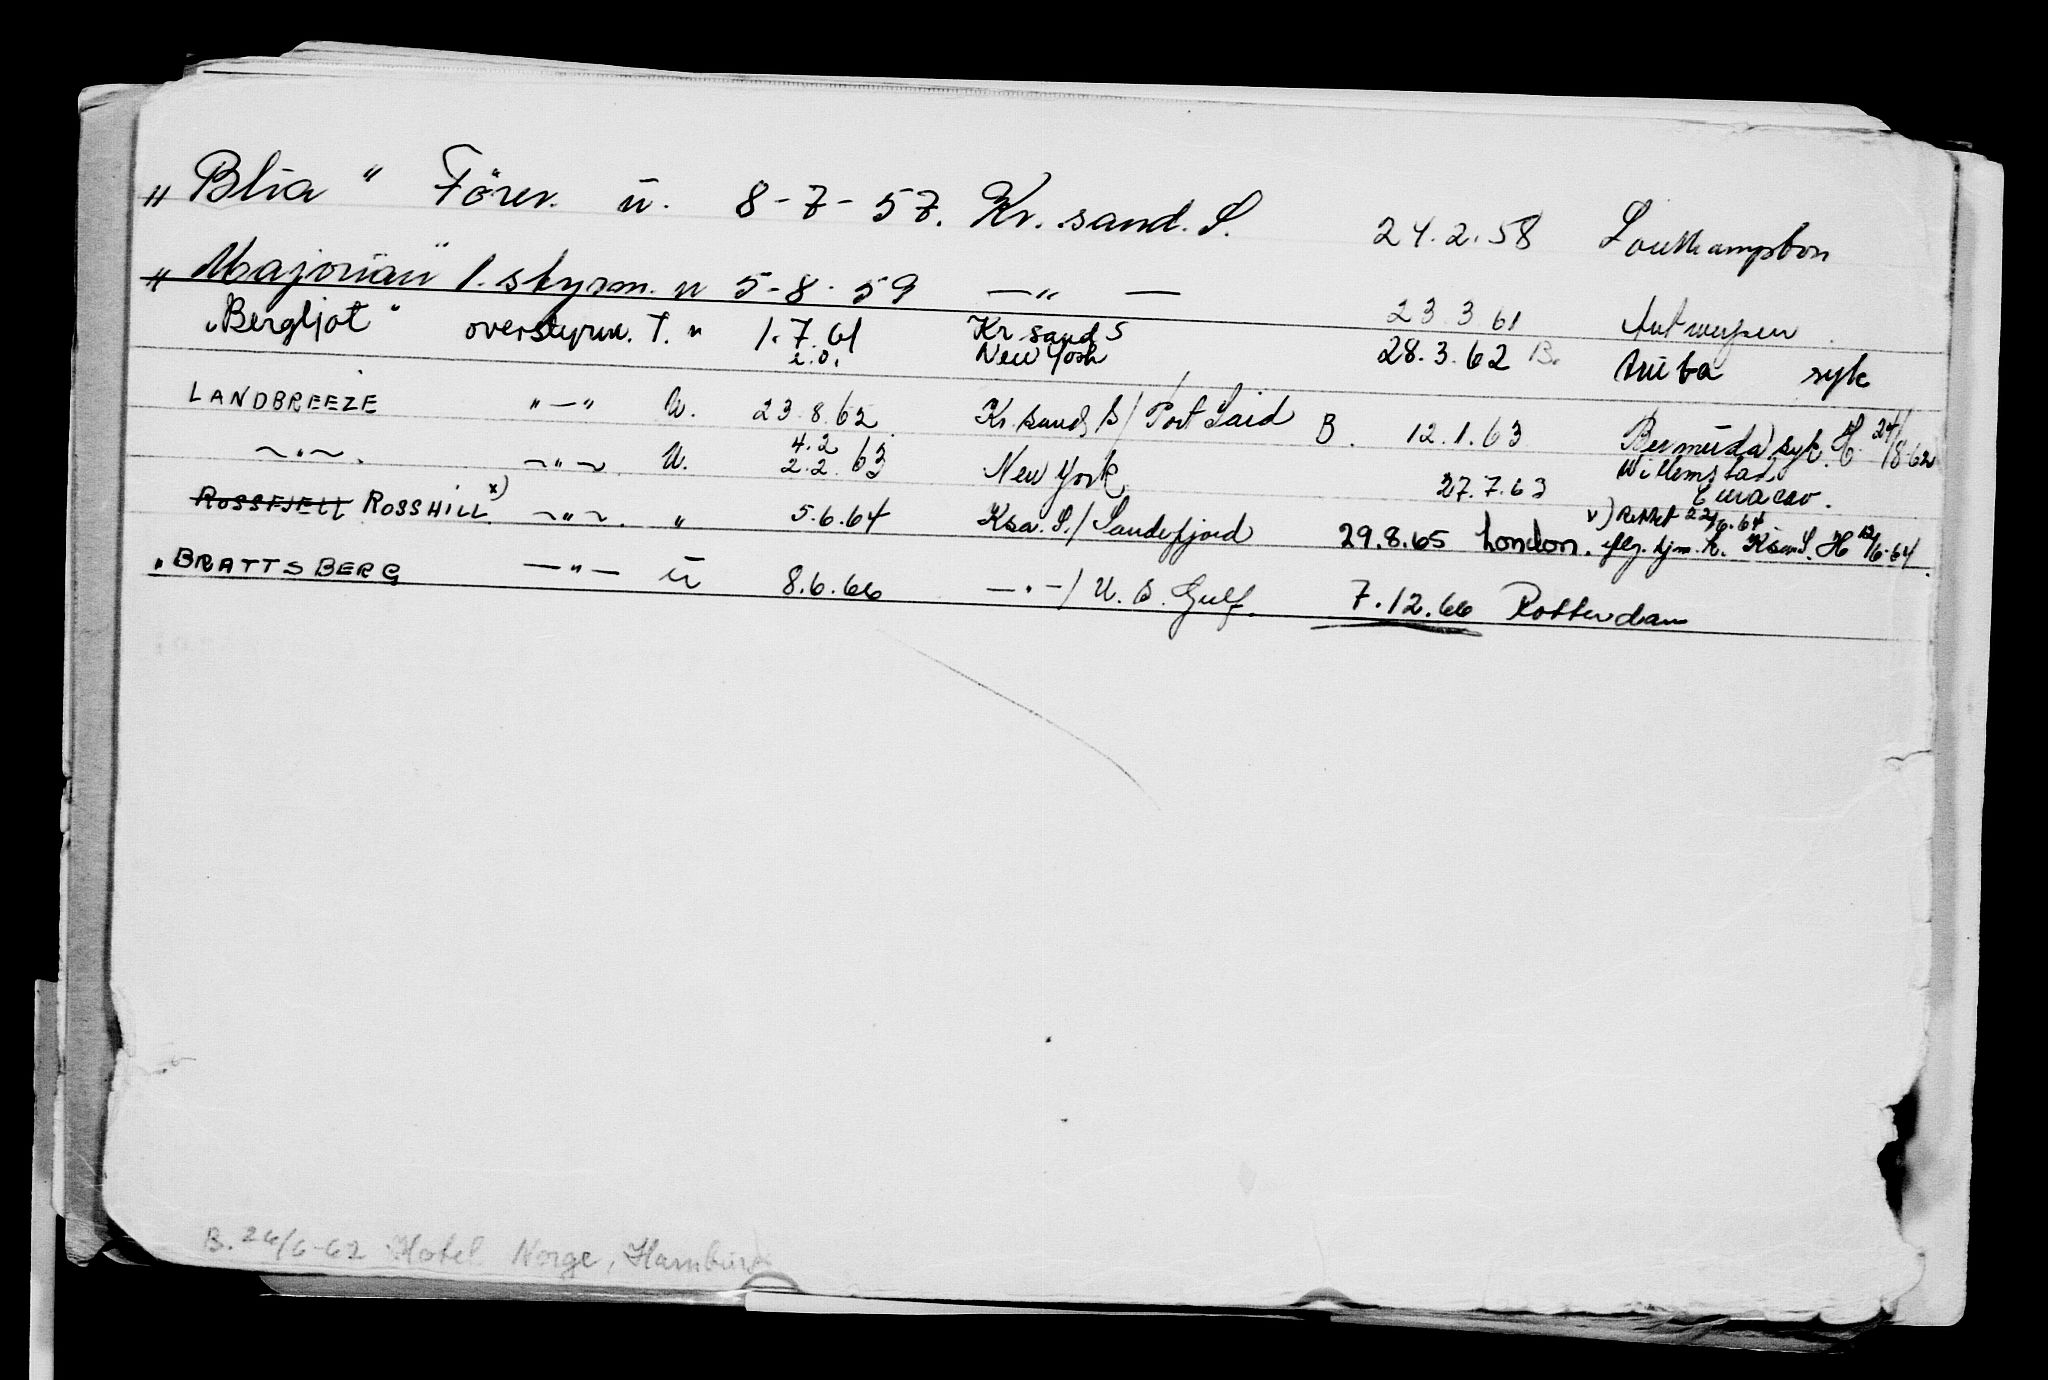 „ Blia " Förer. ü. 8-7-57. Kr. sand. S. 24.2.58 Southampton
„ Majorian" 1. styrm. u 5-8-59 —„— 23.3.61 Antwerpen
„Bergljot" overstyrm. T. u 1.7.61 Kr.sand S 28.3.62 B. Aruba syk
i.o. New York
LANDBREEZE "—" U. 23.8.62 Kr. sand S/ Port Said B. 12.1.63 Bermuda syk. H 24/8-62
~"~. ~"~ U. 4.2 2.2.63 New York. 27.7.63 Willemstad Curacao.
ROSSFJELL ROSSHILL x) ~"~. " 5.6.64 Ksa. S./ Sandefjord 29.8.65 London. x) Rettet 22/6.64 H 12/6-64
„BRATTSBERG —"— ü 8.6.66 —"—/ U.S. Gulf. 7.12.66 Rotterdam
B. 26/6-62 Hotel Norge, Hamburg